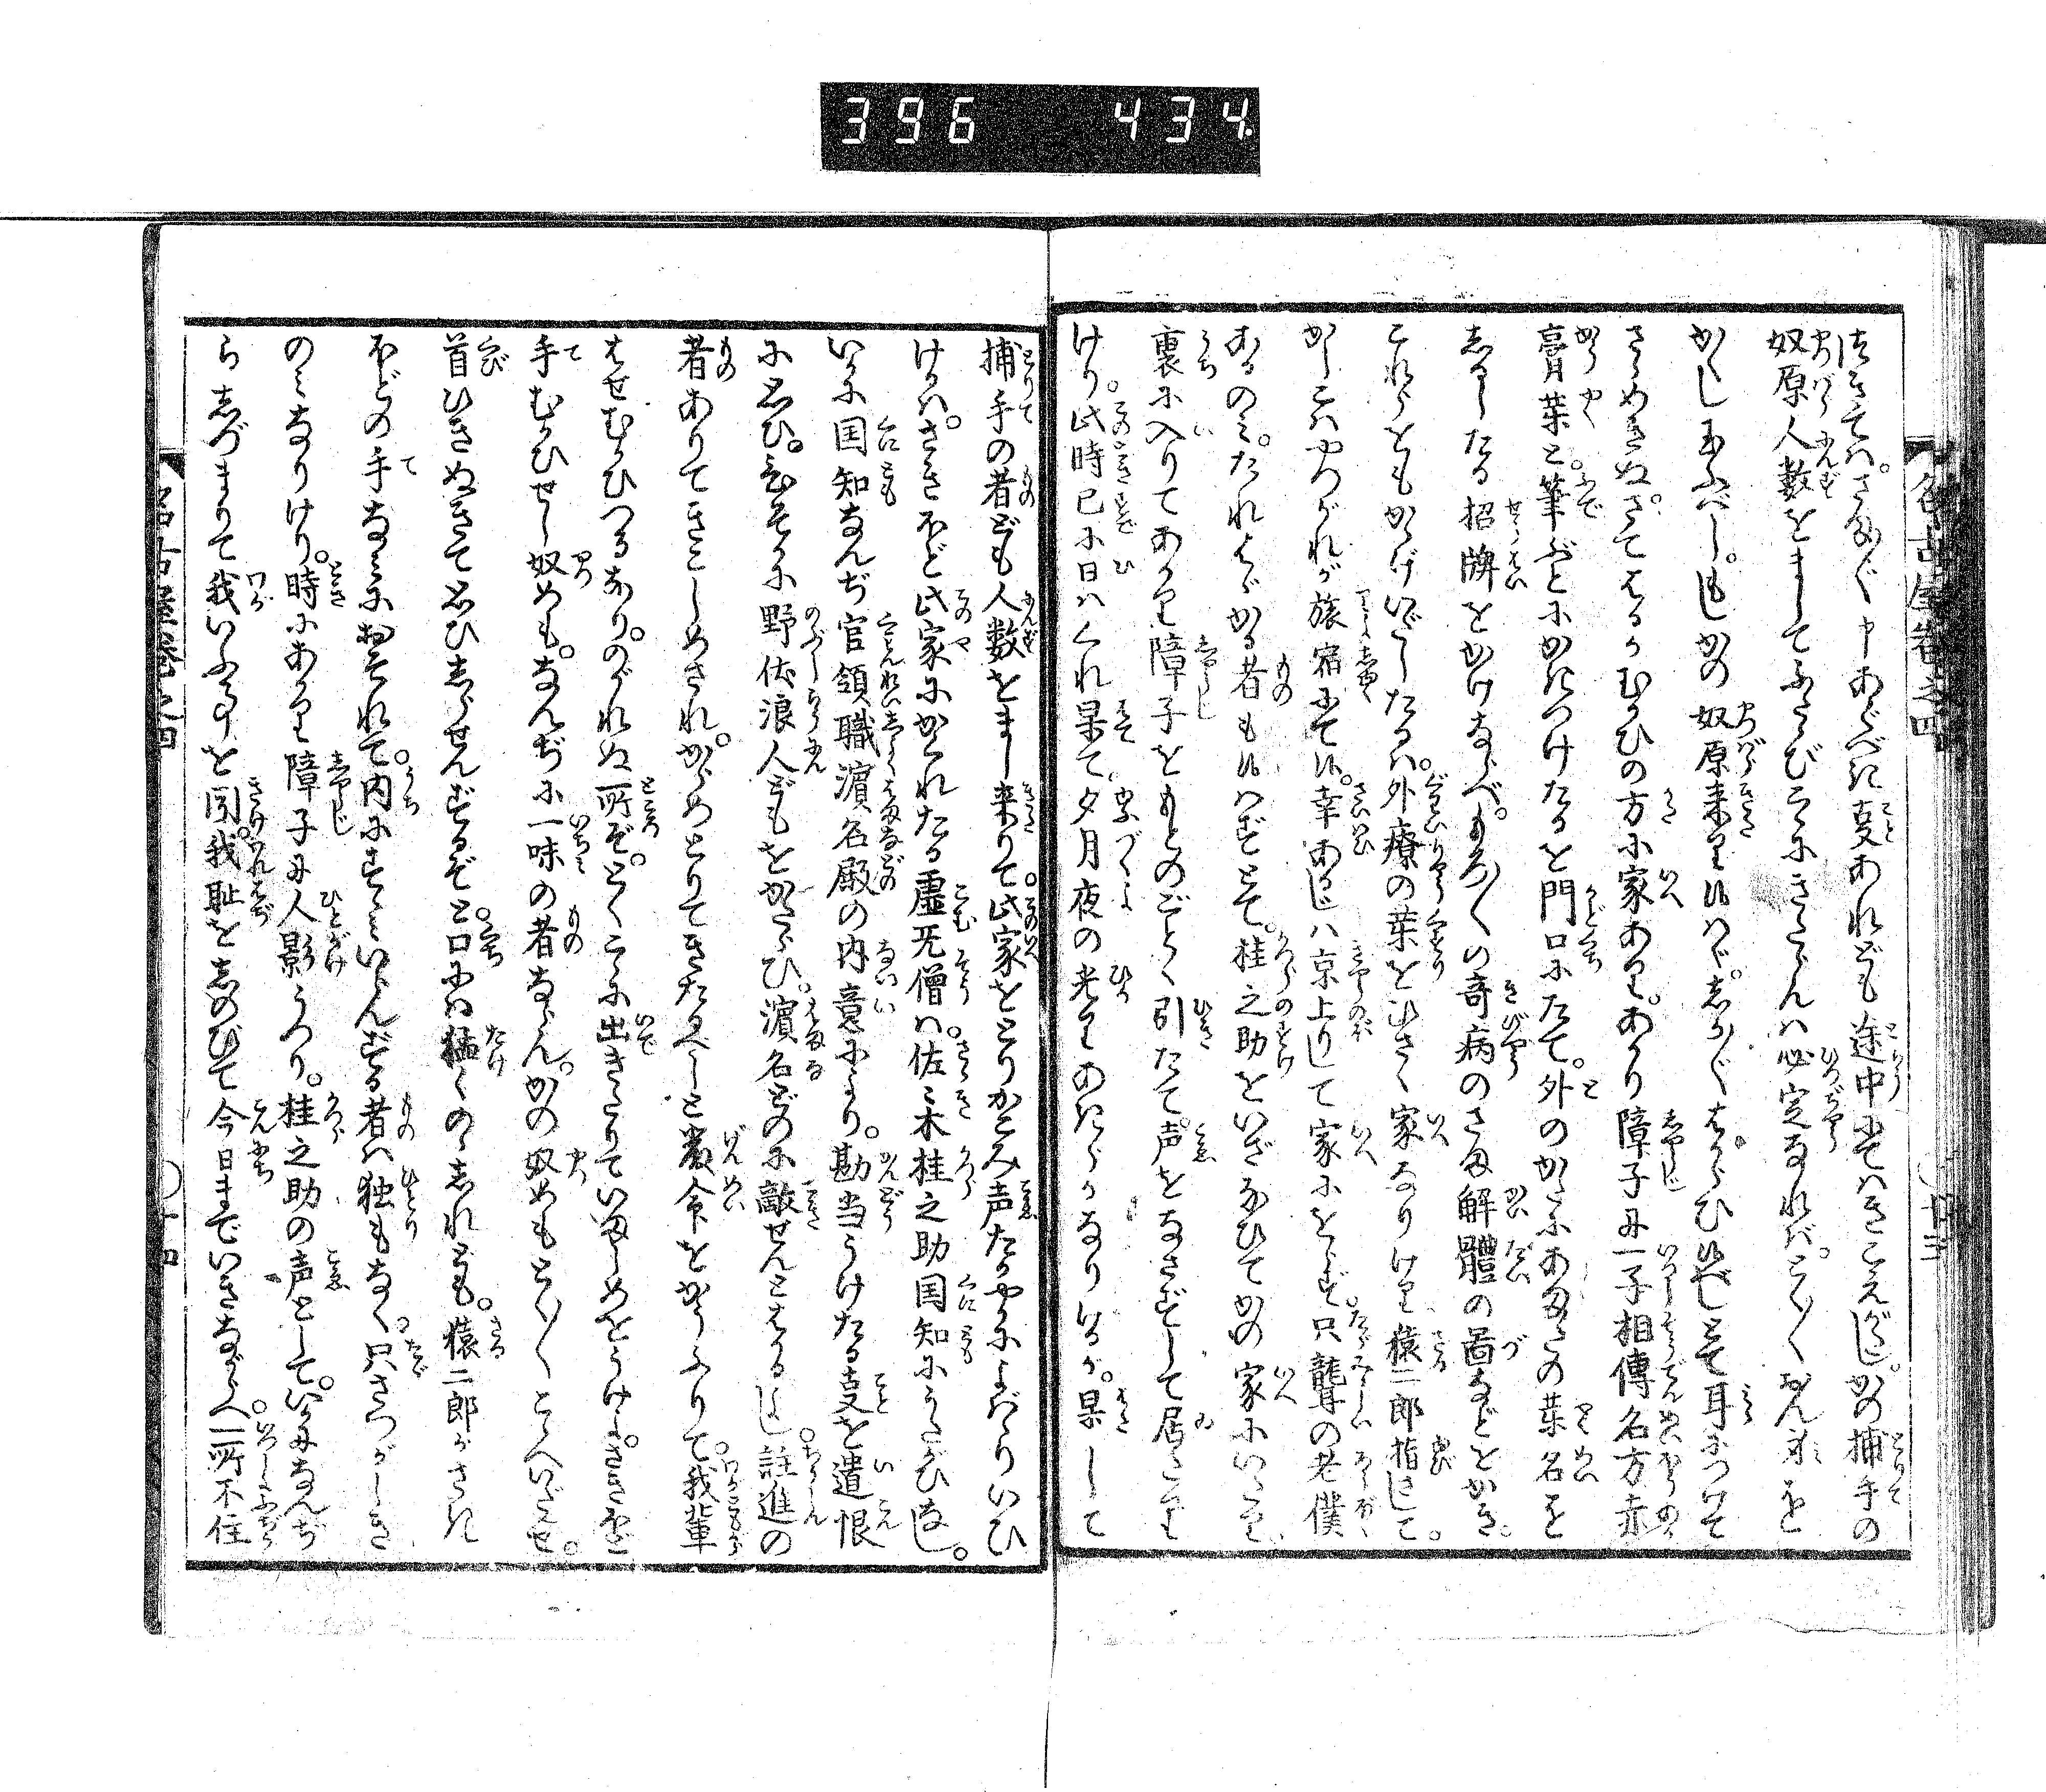 396 434
名古屋巻之四 ○廿三
候きては。さま〴〵申あぐべき事あれども途中にてはきこえがたし。かの捕手の
奴原人数をましてふたゝびこゝにきたらんは必定なれば。とく〳〵おん身を
かくし玉ふべし。もしかの奴原来り候はゞ。しか〴〵はからひ候べしとて耳につけて
さゝめきぬ。さてはるかむかひの方に家あり。あかり障子に一子相傳名方赤
膏薬と。筆ぶとにかきつけたるを門口にたて。外のかたにあまたの薬名を
しるしたる招牌をかけならべ。もろ〳〵の奇病のさま解體の啚などをかき。
これらをもかゝげいだしたるは。外療の薬をひさく家なりけり猿二郎指さして。
かしこはやつがれが旅宿にて候。幸あるじは京上りして家にをらず。只聾の老僕
あるのみ。たれはゞかる者も候はずとて。桂之助をいざなひてかの家にいたり
裏に入りてあかり障子をもとのごとく引たて。声をなさずして居たり
けり。此時已に日はくれ果て。夕月夜の光りあきらかなりけるが。果して
捕手の者ども人数をまし来りて。此家をとりかこみ声たかやかによばゝりいひ
けるは。さきほど此家にかくれたる虚无僧は。佐々木桂之助国知にうたがひなし。
いかに国知なんぢ官領職濵名殿の内意により。勘当うけたる支を遺恨
に思ひ。ひそかに野伏浪人どもをかたらひ。濵名どのに敵せんとはかるよし註進の
者ありてきこしめされ。からめとりてきたるべしと嚴命をかうふりて。我輩
はせむかひつるなり。のがれぬ所ぞ。とくこゝに出きたりていましめをうけよ。さきほど
手むかひせし奴めも。なんぢに一味の者ならん。かの奴めもとく〳〵こゝへいだせ。
首ひきぬきて思ひしらせんずるぞと。口には猛くのゝしれども。猿二郎がさき
ほどの手なみにおそれて。内にすゝみいらんずる者は独もなく。只さつがしき
のみなりけり。時にあかり障子に人影うつり。桂之助の声として。いかになんぢ
らしづまりて我いふ事を聞。我恥をしのびて今日までいきながらへ。一所不住
名古屋巻之四 ○廿四